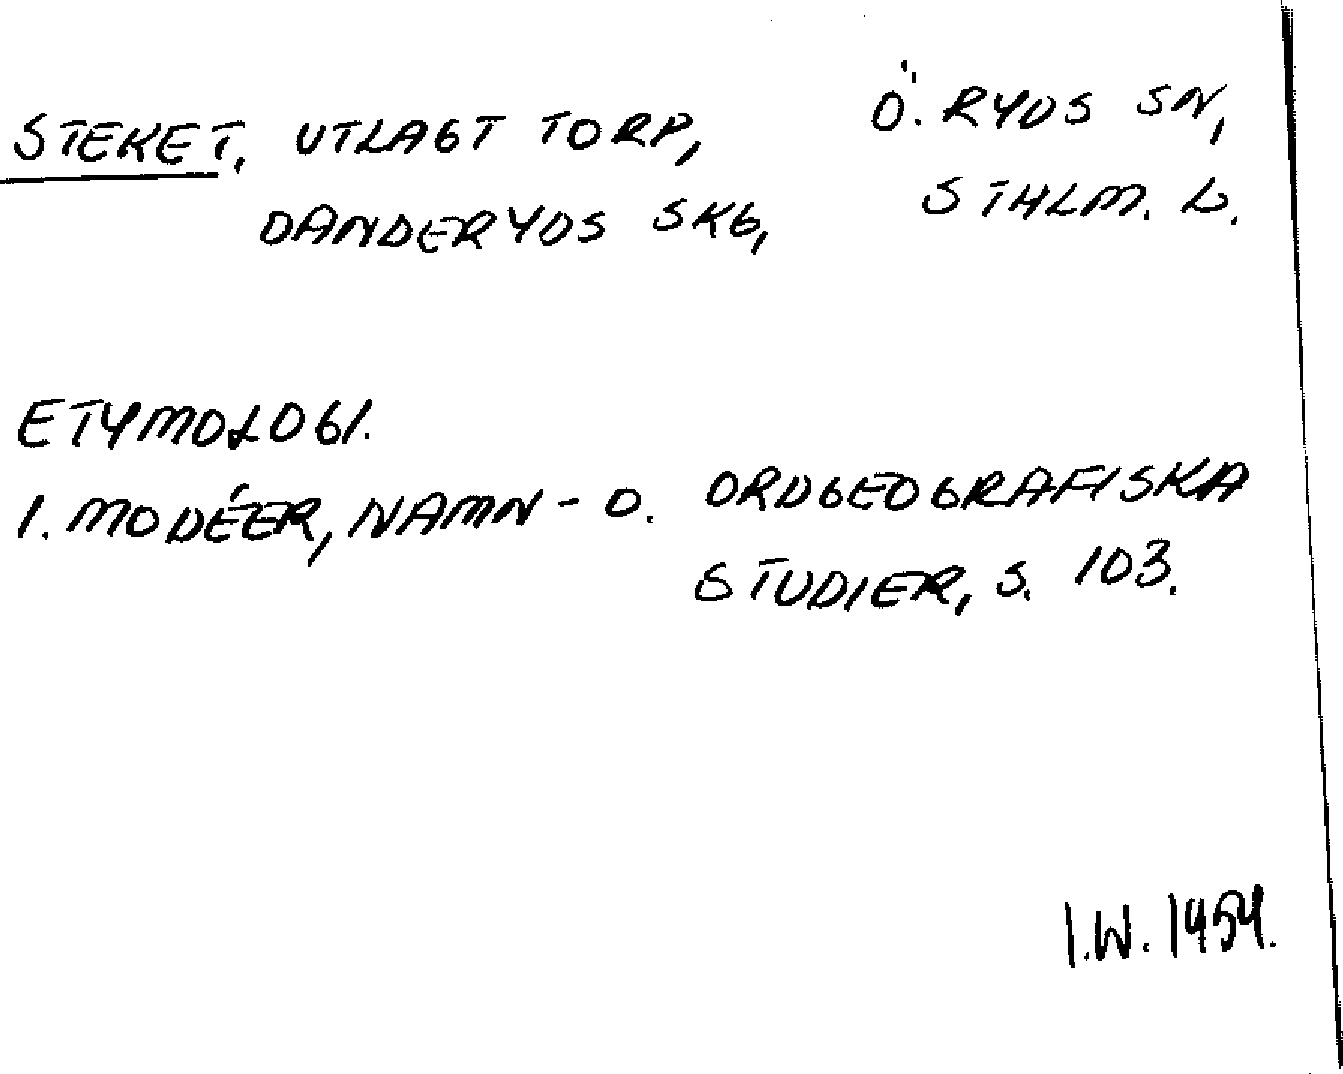 STEKET, UTLAGT TORP, Ö. RYDS SN,
DANDERYDS SKG, STHLM. L.
ETYMOLOGI.
I. MODÉER, NAMN- O. ORDGEOGRAFISKA
STUDIER, S. 103.
I.W. 1954.